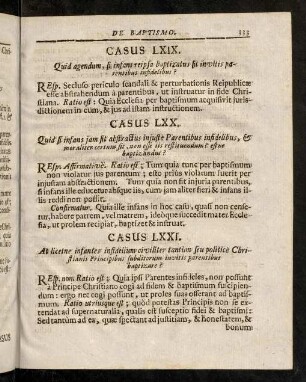 DE BAPTISMO. 113
CASUS LXIX.
Quid agendum, si infans reipsa baptizatus sit invitis pa-
rentibus infidelibus?
Resp. Secluso periculo scandali & perturbationis Reipublicæ
esse abstrahendum à parentibus, ut instruatur in fide Chri-
stiana. Ratio est: Quia Ecclesia per baptismum acquisivit juris-
dictionem in eum, & jus ad istam instructionem.
CASUS LXX.
Quid si infans jam sit abstractus injustè Parentibus infidelibus, &
moraliter certum sit, non esse iis restituendum: estne
baptizandus?
Resp. Affirmativè. Ratio est: Tum quia tunc per baptismum
non violatur jus parentum; esto priùs violatum fuerit per
injustam abstractionem. Tum quia non fit injuria parentibus,
si infans ille educetur absque iis, cum jam aliter fieri & infans il-
lis reddi non possit.
Confirmatur. Quia ille infans in hoc casu, quasi non cen-
setur, habere patrem, vel matrem, ideòque succedit mater Eccle-
sia, ut prolem recipiat, baptizet & instruat.
CASUS LXXI.
An licitè infantes infidelium civiliter tantùm seu politicè Chri-
stianis Principibus subditorum invitis parentibus
baptizare?
Resp. non. Ratio est: Quia ipsi Parentes infideles, non possunt
à Principe Christiano cogi ad fidem & baptismum suscipien-
dum: ergo nec cogi possunt, ut proles suas offerant ad baptis-
mum. Ratio utriusque est; quòd potestas Principis non se ex-
tendat ad supernaturalia, qualis est susceptio fidei & baptismi:
Sed tantùm ad ea, quæ spectant ad justitiam, & honestatem, &
bonum